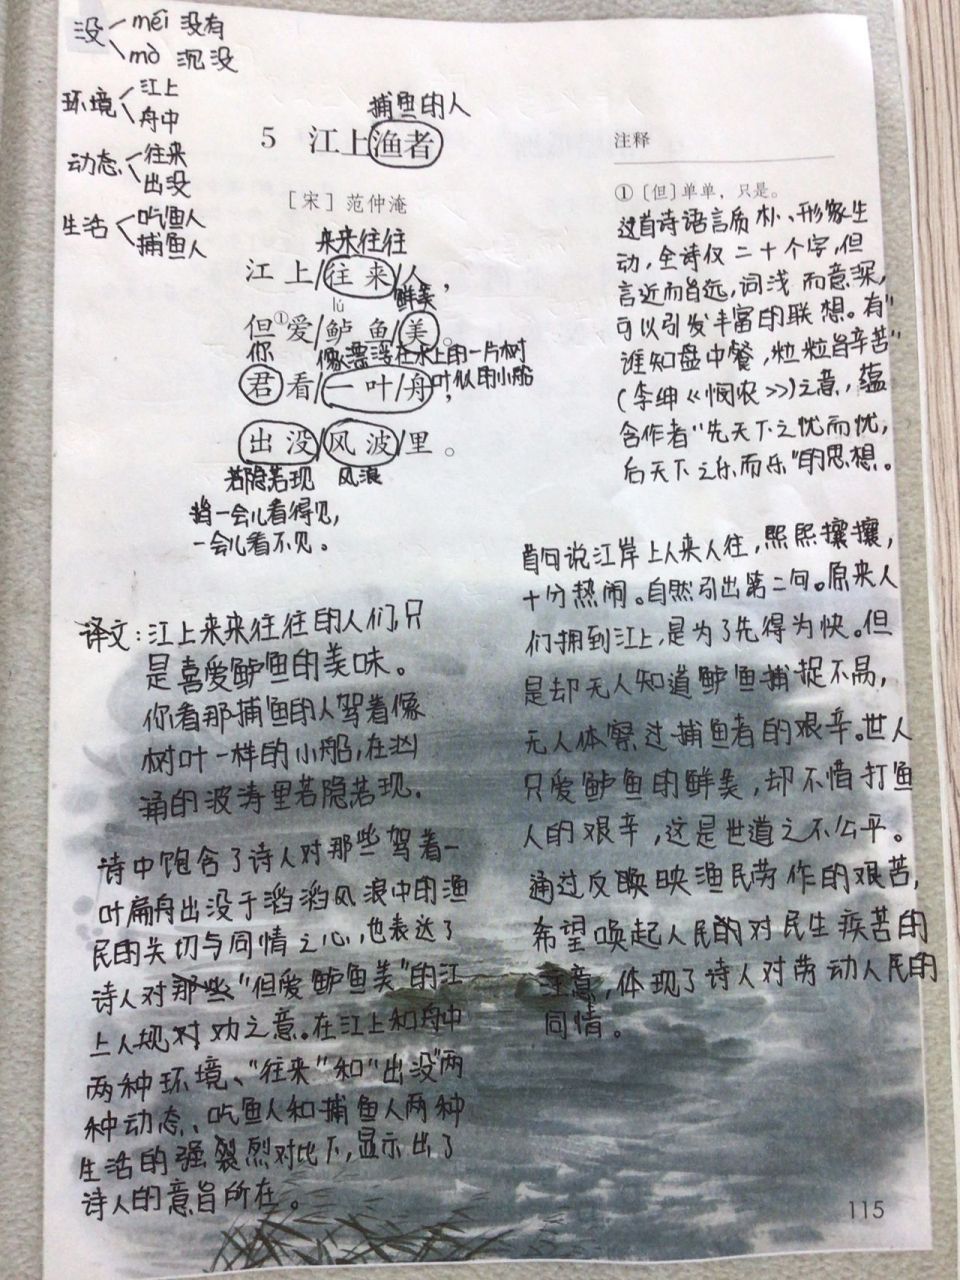 没 méi 没有
mò 沉没
环境 江上
舟中
动态 往来
出没
生活 吃鱼人
捕鱼人
捕鱼的人
5 江上渔者
[宋] 范仲淹
来来往往
江上/往来/人，
鲜美
lú
但①爱/鲈鱼/美。
你 像漂浮在水上的一片树
叶似的小船
君看/一叶/舟，
出没/风波/里。
若隐若现 风浪
指一会儿看得见，
一会儿看不见。
注释
①［但］单单，只是。
这首诗语言质朴、形象生
动，全诗仅二十个字，但
言近而旨远，词浅而意深，
可以引发丰富的联想。有"
谁知盘中餐，粒粒皆辛苦"
(李绅《悯农》)之意，蕴
含作者"先天下之忧而忧，
后天下之乐而乐"的思想。
译文：江上来来往往的人们，只
是喜爱鲈鱼的美味。
你看那捕鱼的人驾着像
树叶一样的小船，在汹
涌的波涛里若隐若现.
诗中饱含了诗人对那些驾着一
叶扁舟出没于滔滔风浪中的渔
民的关切与同情之心，也表达了
诗人对那些"但爱鲈鱼美"的江
上人规对劝之意。在江上和舟中
两种环境、"往来"和"出没"两
种动态、吃鱼人和捕鱼人两种
生活的强裂烈对比下，显示出了
诗人的意旨所在。
首句说江岸上人来人往，熙熙攘攘，
十分热闹。自然引出第二句。原来人
们拥到江上，是为了先得为快。但
是却无人知道鲈鱼捕捉不易，
无人体察过捕鱼者的艰辛。世人
只爱鲈鱼的鲜美，却不惜打鱼
人的艰辛，这是世道之不公平。
通过反映映渔民劳作的艰苦，
希望唤起人民的对民生疾苦的
注意，体现了诗人对劳动人民的
同情。
115